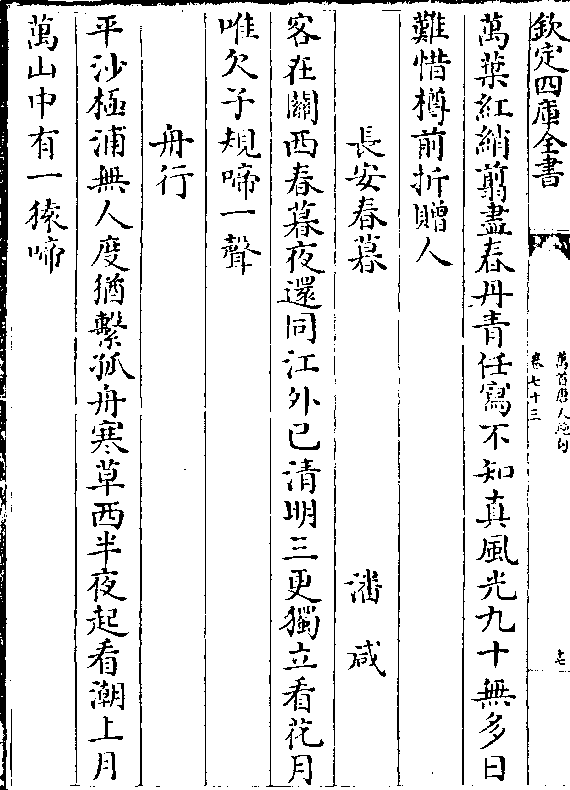 欽定四庫全書
萬首唐人絶句
卷七十三
萬葉紅綃翦盡春丹青任寫不知真風光九十無多日
難惜樽前折贈人
長安春暮　潘咸
客在關西春暮夜還同江外已清明三更獨立看花月
唯欠子規啼一聲
舟行
平沙極浦無人度猶繫孤舟寒草西半夜起看潮上月
萬山中有一猿啼